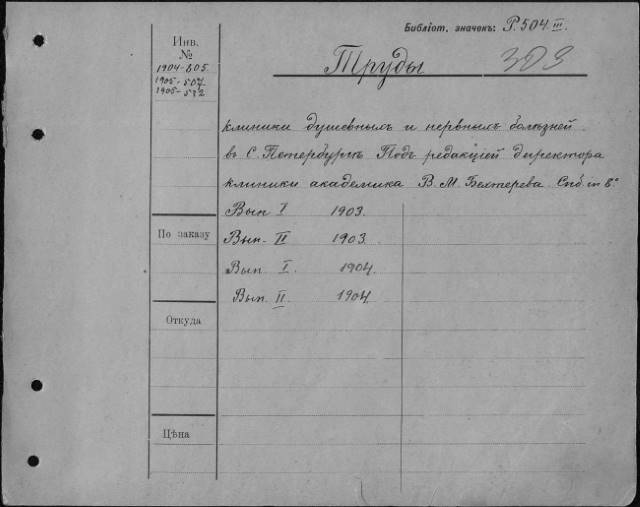 Библіот. значекъ: Р. 504 III.
Инв.
№
1904-605
1905-507
1905-532
Труды
303
клиники душевныхъ и нервныхъ болѣзней
въ С. Петербургѣ Подъ редакціей директора
клиники академика В. М. Бехтерева Спб in 8°
Вып I 1903.
По заказу
Вып. II 1903.
Вып. I. 1904.
Вып. II 1904.
Откуда
Цѣна